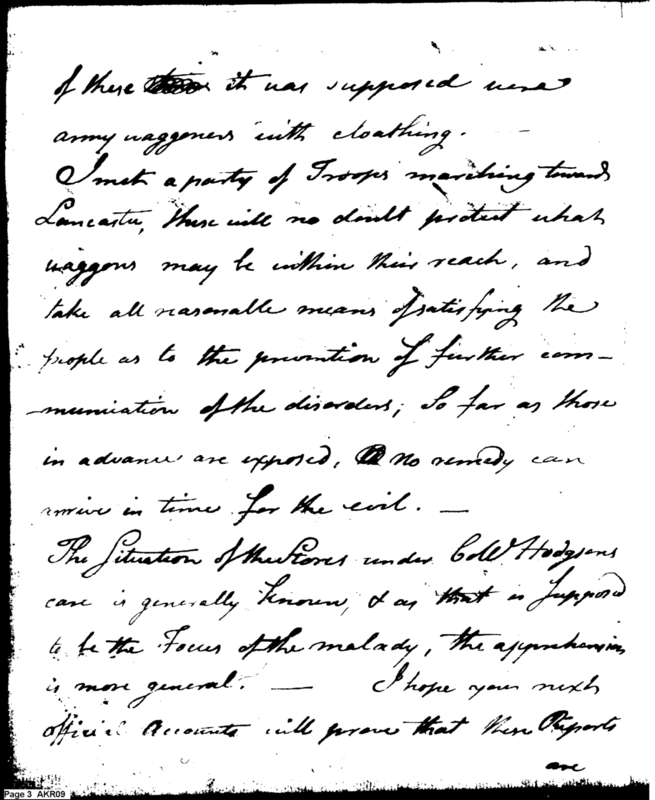 of these it was supposed were
army waggoners with cloathing.
I met a party of Troops marching towards
Lancaster, these will no doubt protect what
waggons may be within their reach, and
take all reasonable means of satisfying the
people as to the prevention of further com-
-munication of the disorders; So far as those
in advance are exposed, no remedy can
arrive in time for the evil. —
The Situation of the Stores under Coll Hodgsons
care is generally known, & as that is supposed
to be the Focus of the malady, the apprehension
is more general. — I hope your next
official Accounts will prove that these Reports
are
Page 3 AKR09